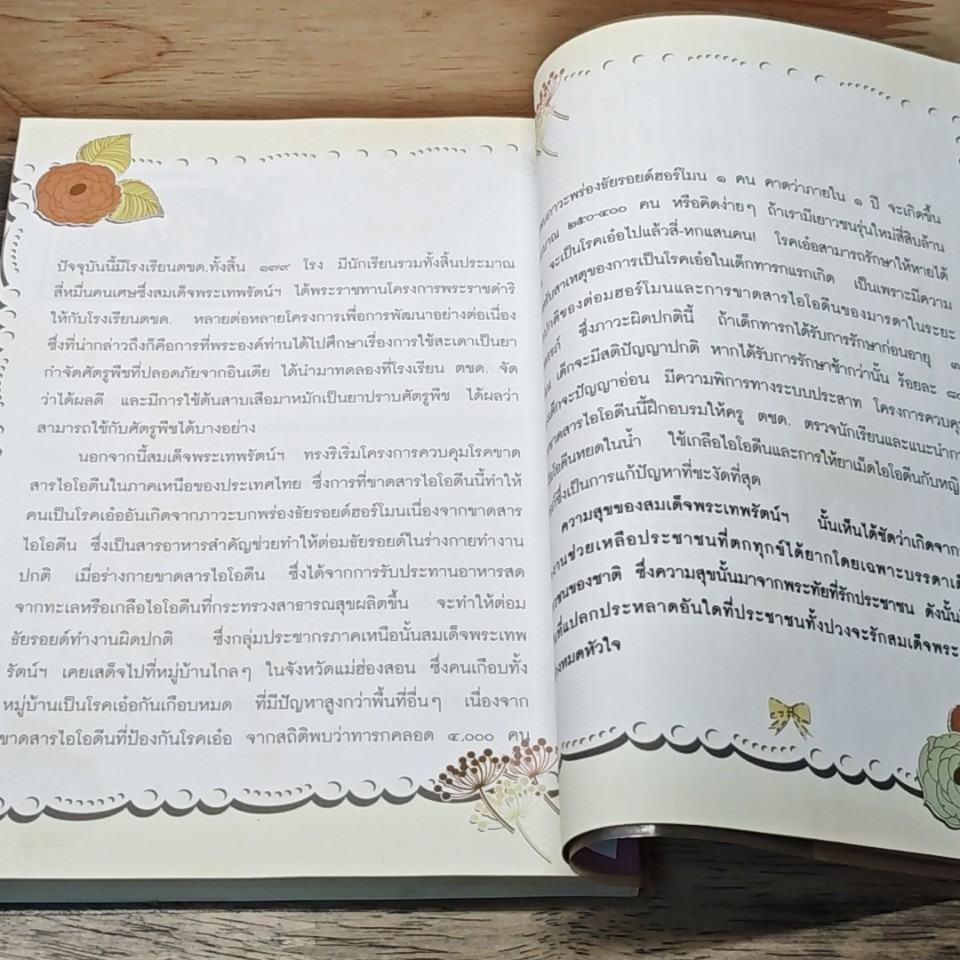 ปัจจุบันนี้มีโรงเรียนตชด.ทั้งสิ้น ๑๗๙ โรง มีนักเรียนรวมทั้งสิ้นประมาณ
สี่หมื่นคนเศษซึ่งสมเด็จพระเทพรัตน์ฯ ได้พระราชทานโครงการพระราชดำริ
ให้กับโรงเรียนตชด. หลายต่อหลายโครงการเพื่อการพัฒนาอย่างต่อเนื่อง
ซึ่งที่น่ากล่าวถึงก็คือการที่พระองค์ท่านได้ไปศึกษาเรื่องการใช้สะเดาเป็นยา
กำจัดศัตรูพืชที่ปลอดภัยจากอินเดีย ได้นำมาทดลองที่โรงเรียน ตชด. จัด
ว่าได้ผลดี และมีการใช้ต้นสาบเสือมาหมักเป็นยาปราบศัตรูพืช ได้ผลว่า
สามารถใช้กับศัตรูพืชได้บางอย่าง
นอกจากนี้สมเด็จพระเทพรัตน์ฯ ทรงริเริ่มโครงการควบคุมโรคขาด
สารไอโอดีนในภาคเหนือของประเทศไทย ซึ่งการที่ขาดสารไอโอดีนนี้ทำให้
คนเป็นโรคเอ๋ออันเกิดจากภาวะบกพร่องธัยรอยด์ฮอร์โมนเนื่องจากขาดสาร
ไอโอดีน ซึ่งเป็นสารอาหารสำคัญช่วยทำให้ต่อมธัยรอยด์ในร่างกายทำงาน
ปกติ เมื่อร่างกายขาดสารไอโอดีน ซึ่งได้จากการรับประทานอาหารสด
จากทะเลหรือเกลือไอโอดีนที่กระทรวงสาธารณสุขผลิตขึ้น จะทำให้ต่อม
ธัยรอยด์ทำงานผิดปกติ ซึ่งกลุ่มประชากรภาคเหนือนั้นสมเด็จพระเทพ
รัตน์ฯ เคยเสด็จไปที่หมู่บ้านไกลๆ ในจังหวัดแม่ฮ่องสอน ซึ่งคนเกือบทั้ง
หมู่บ้านเป็นโรคเอ๋อกันเกือบหมด ที่มีปัญหาสูงกว่าพื้นที่อื่นๆ เนื่องจาก
ขาดสารไอโอดีนที่ป้องกันโรคเอ๋อ จากสถิติพบว่าทารกคลอด ๔,๐๐๐ คน
ภาวะพร่องธัยรอยด์ฮอร์โมน ๑ คน คาดว่าภายใน ๑ ปี จะเกิดขึ้น
๒๕๐-๔๐๐ คน หรือคิดง่ายๆ ถ้าเรามีเยาวชนรุ่นใหม่สี่สิบล้าน
จะเป็นโรคเอ๋อไปแล้วสี่-หกแสนคน! โรคเอ๋อสามารถรักษาให้หายได้
สาเหตุของการเป็นโรคเอ๋อในเด็กทารกแรกเกิด เป็นเพราะมีความ
ปกติของต่อมฮอร์โมนและการขาดสารไอโอดีนของมารดาในระยะ
ซึ่งภาวะผิดปกตินี้ ถ้าเด็กทารกได้รับการรักษาก่อนอายุ
เด็กจะมีสติปัญญาปกติ หากได้รับการรักษาช้ากว่านั้น ร้อยละ
จะปัญญาอ่อน มีความพิการทางระบบประสาท โครงการควบคุม
ขาดสารไอโอดีนนี้ฝึกอบรมให้ครู ตชด. ตรวจนักเรียนและแนะนำการ
ไอโอดีนหยดในน้ำ ใช้เกลือไอโอดีนและการให้ยาเม็ดไอโอดีนกับหญิง
ซึ่งเป็นการแก้ปัญหาที่ชะงัดที่สุด
ความสุขของสมเด็จพระเทพรัตน์ฯ นั้นเห็นได้ชัดว่าเกิดจาก
ช่วยเหลือประชาชนที่ตกทุกข์ได้ยากโดยเฉพาะบรรดา
ของชาติ ซึ่งความสุขนั้นมาจากพระทัยที่รักประชาชน ดังนั้น
ที่แปลกประหลาดอันใดที่ประชาชนทั้งปวงจะรักสมเด็จพระ
หมดหัวใจ